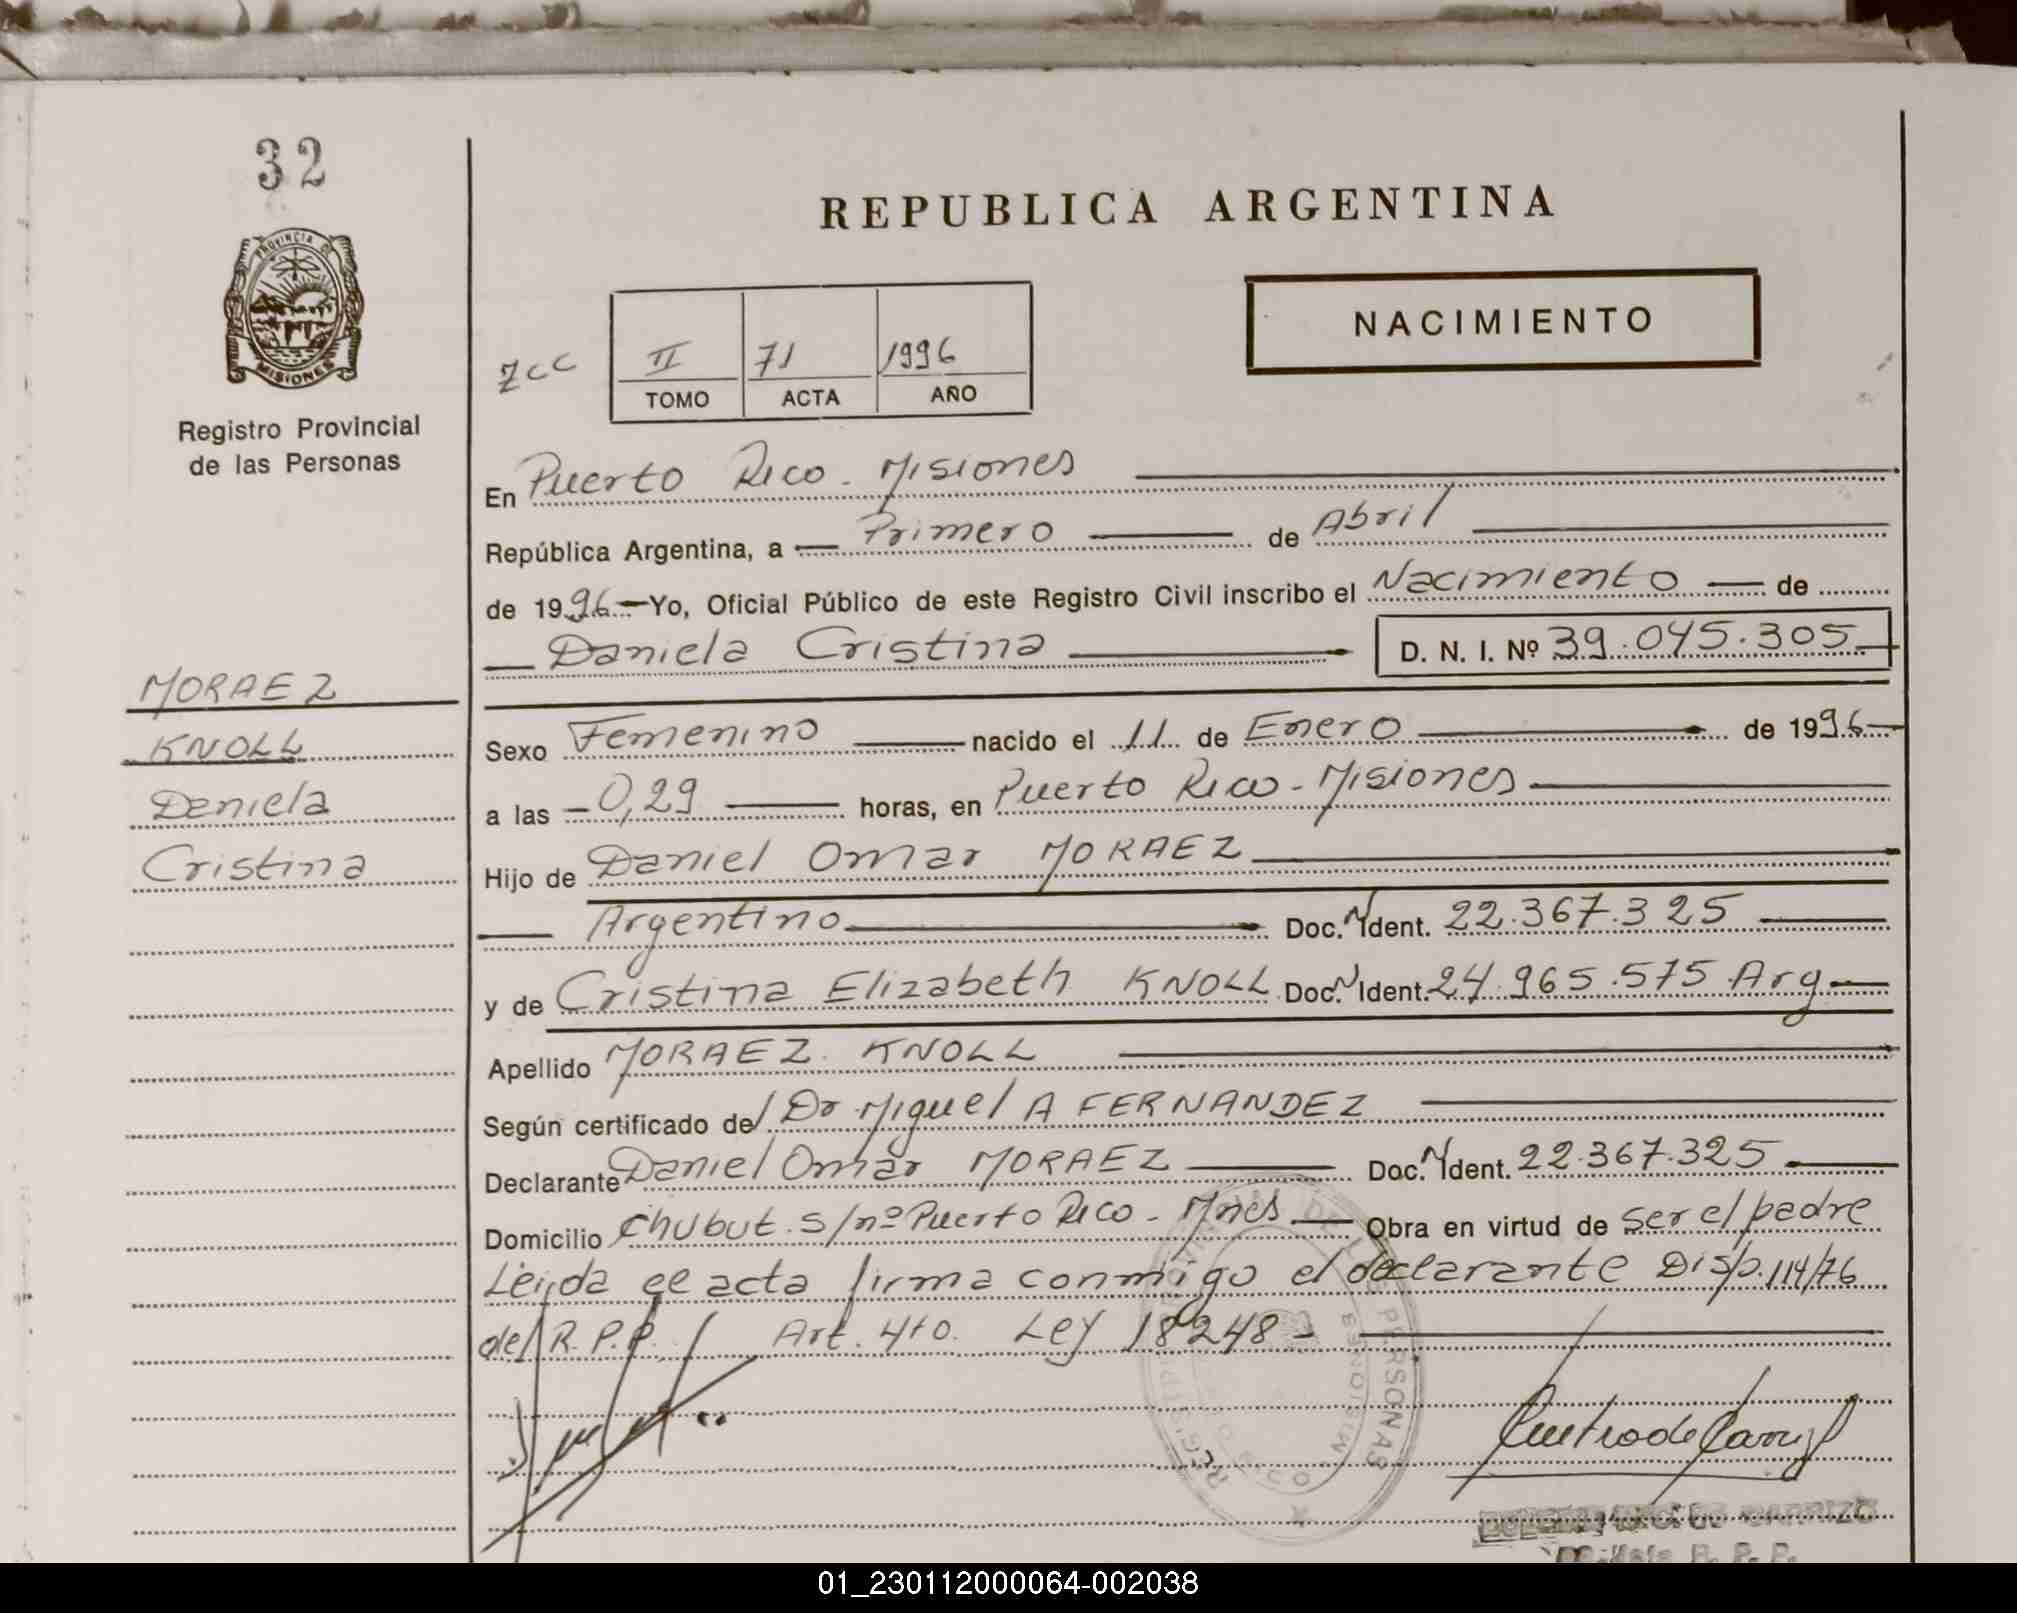 32
REPUBLICA ARGENTINA
PROVINCIA DE
MISIONES
Registro Provincial
de las Personas
NACIMIENTO
zcc
II 71 1996
TOMO ACTA AÑO
En Puerto Rico - Misiones
República Argentina, a Primero de Abril
de 1996 Yo, Oficial Público de este Registro Civil inscribo el Nacimiento de
Daniela Cristina D. N. I. Nº 39.045.305
MORAEZ
KNOLL
Daniela
Cristina
Sexo Femenino nacido el 11 de Enero de 1996
a las 0,29 horas, en Puerto Rico - Misiones
Hijo de Daniel Omar MORAEZ
Argentino Doc. N Ident. 22.367.325
y de Cristina Elizabeth KNOLL Doc. N Ident. 24.965.575 Arg
Apellido MORAEZ KNOLL
Según certificado del Dr Miguel A FERNANDEZ
Declarante Daniel Omar MORAEZ Doc. N Ident. 22.367.325
Domicilio Chubut S/nº Puerto Rico - Mnes Obra en virtud de ser el padre
Leida el acta firma conmigo el declarante Disp. 114/76
del R.P.P. Art. 4to. Ley 18248 -
DE LAS PERSONAS
MISIONES
CARRIZO
R. P. P.
01_230112000064-002038